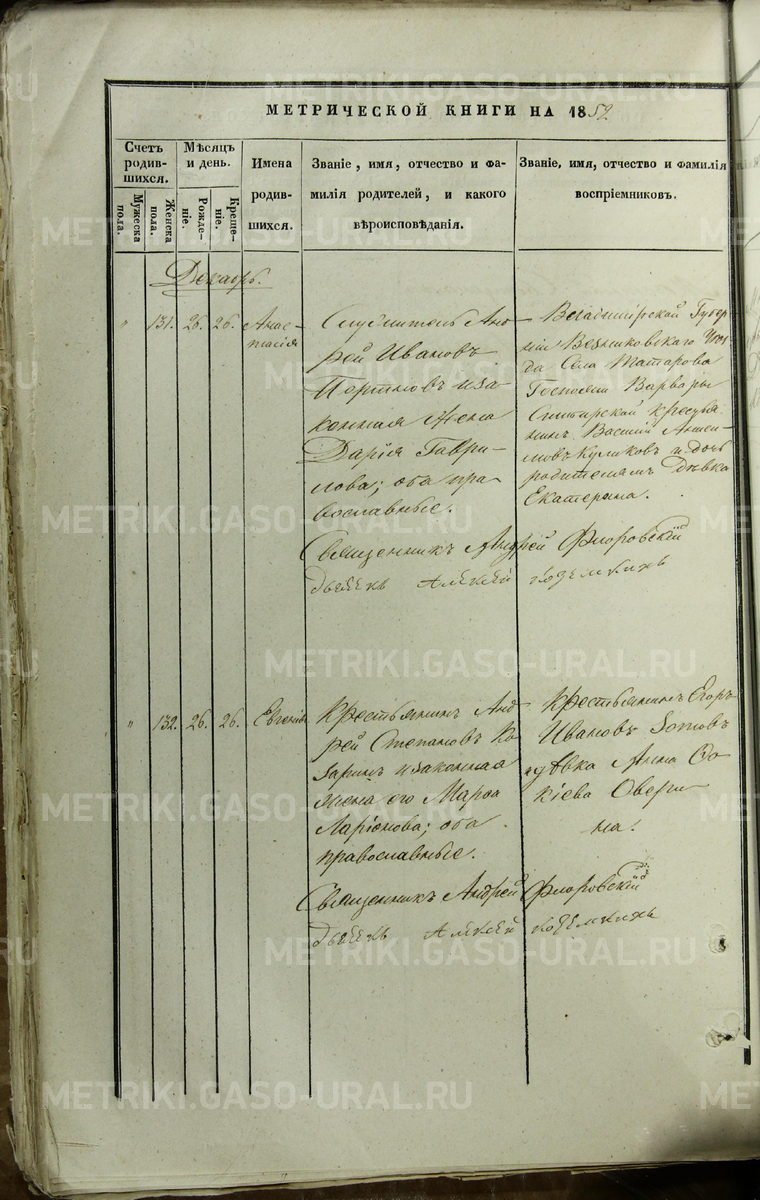 МЕТРИЧЕСКОЙ КНИГИ НА 1852
Счетъ родившихся.
Мѣсяцъ и день.
Имена родившихся.
Званіе, имя, отчество и фамилія родителей, и какого вѣроисповѣданія.
Званіе, имя, отчество и фамилія воспріемниковъ.
Мужеска пола.
Женска пола.
Рожденіе.
Крещеніе.
Декабрь.
" 131. 26. 26. Анастасія
Служитель Андрей Ивановъ
и законная жена
Дарія Гаврилова; оба православные.
Владимірской Губерніи Вязниковскаго Уѣзда Села Татарова
Госпожи Варвары
крестьянинъ Василій
Куликовъ и дочь
родителямъ дѣвка
Екатерина.
Священникъ Андрей Флоровскій
Дьячекъ Алексѣй
" 132. 26. 26. Евгенія
Крестьянинъ Андрей Степановъ
и законная
жена его Марѳа
Ларіонова; оба
православные.
Крестьянинъ Егоръ
Ивановъ Зотовъ
и дѣвка Анна
Оверина.
Священникъ Андрей Флоровскій
Дьячекъ Алексѣй
METRIKI.GASO-URAL.RU